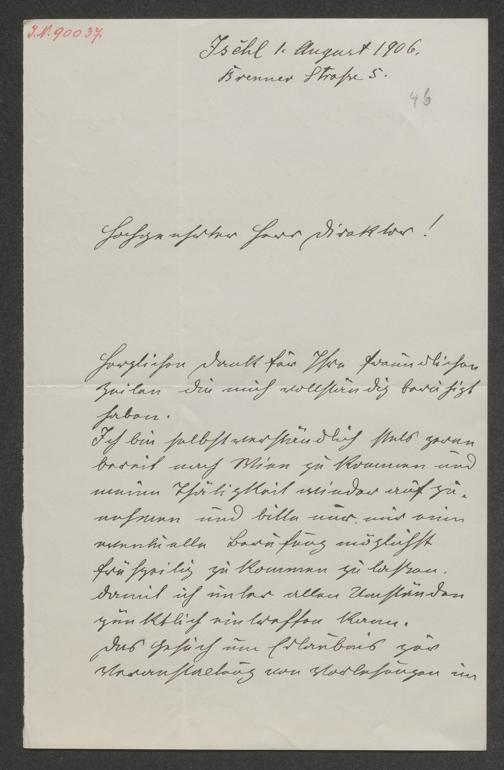 I.N. 90037
Ischl 1. August 1906.
Brenner Straße 5.
46
Hochgeehrter Herr Direktor!
Herzlichen Dank für Ihre freundlichen
Zeilen die mich vollständig beruhigt
haben.
Ich bin selbstverständlich stets gerne
bereit nach Wien zu kommen und
meine Thätigkeit wieder aufzu-
nehmen und bitte nur mir eine
eventuelle Berufung möglichst
frühzeitig zukommen zu lassen.
damit ich unter allen Umständen
pünktlich eintreffen kann.
Das Gesuch um Erlaubnis zur
Veranstaltung von Vorlesungen im